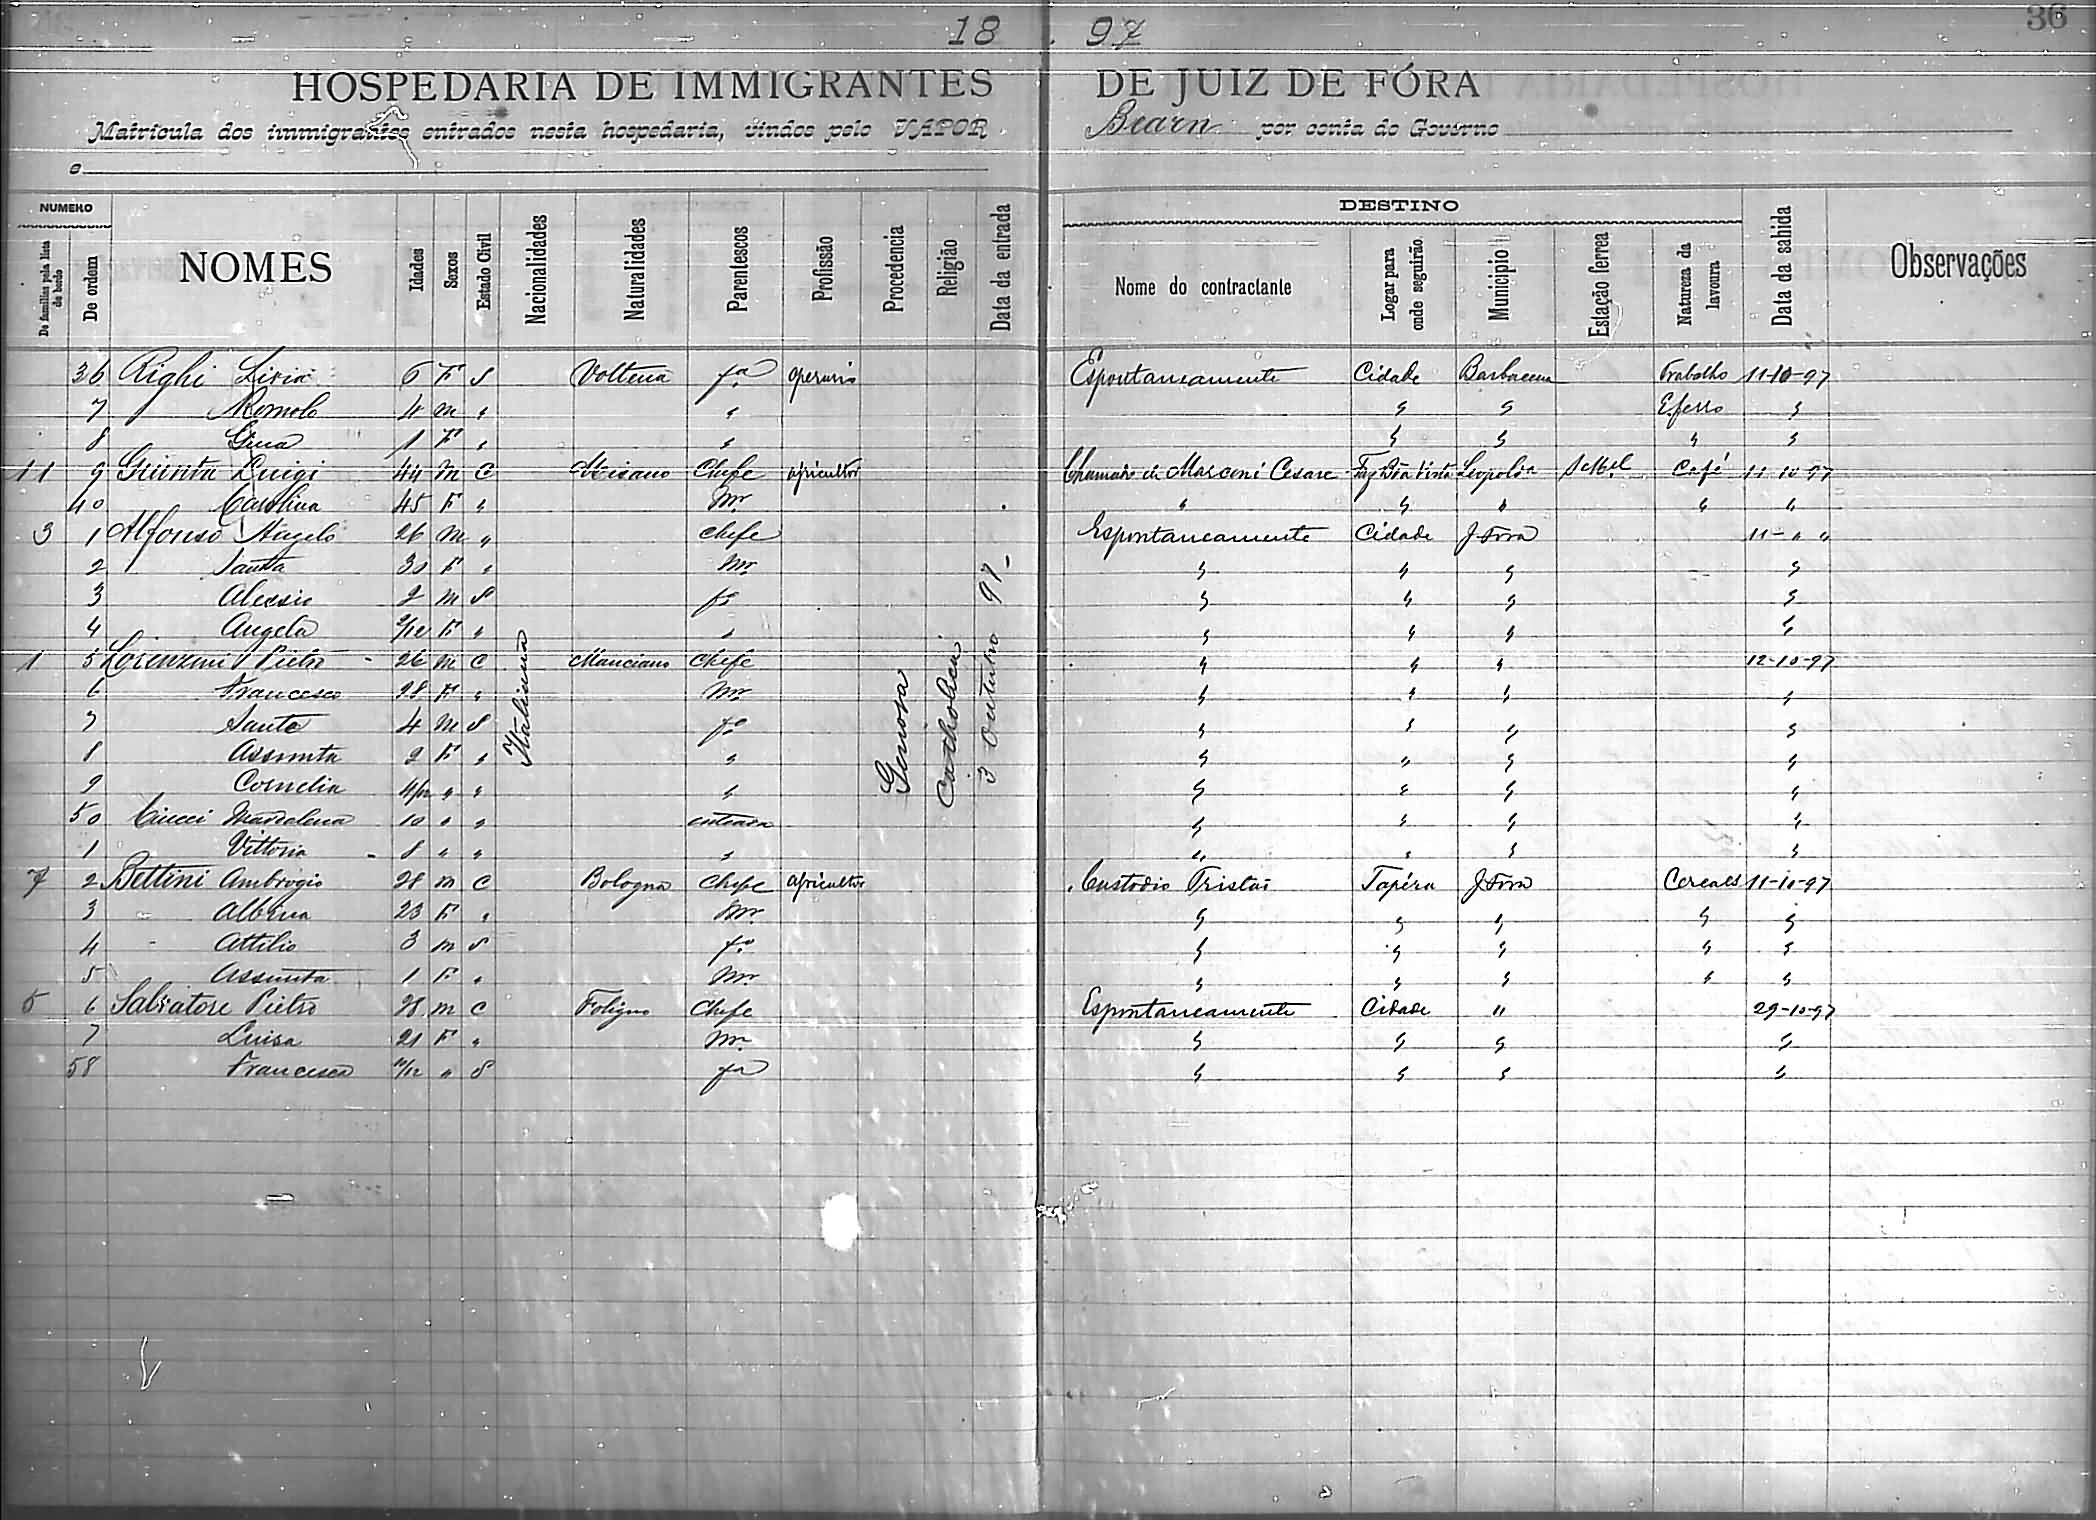 36
18 97
HOSPEDARIA DE IMMIGRANTES DE JUIZ DE FÓRA
Matricula dos immigrantes entrados nesta hospedaria, vindos pelo VAPOR Bearn por conta do Governo
e
NUMERO DESTINO
De familias pela lista de bordo De ordem NOMES Idades Sexos Estado Civil Nacionalidades Naturalidades Parentescos Profissão Procedencia Religião Data da entrada Nome do contractante Logar para onde seguirão Municipio Estação ferrea Natureza da lavoura Data da sahida Observações
36 Righi Livia 6 F S fa operario Espontaneamente Cidade Barbacena Trabalho 11-10-97
7 Romolo 4 m " " " " E. ferro "
8 Gina 1 F " " " " " "
11 9 Luigi 44 m C Misano Chefe agricultor Chamado de Marconi Cesare Faz Bôa Vista Leopoldina Café 11-10-97
40 Carolina 45 F " Mr. " " " " "
3 1 Alfonso Angelo 26 m " Chefe Espontaneamente Cidade J. Fora 11- " "
2 Santa 30 F " Mr. " " " "
3 Alessio 2 m S fo " " " "
4 Angela F " " " " " "
1 5 Lorenzini Pietro 26 m C Manciano Chefe " " " 12-10-97
6 Francesca 28 F " Mr. " " " "
7 Sante 4 m S fo " " " "
8 Assunta 2 F " " " " " "
9 Cornelia 4/12 " " " " " " "
50 Ciucci Maddalena 10 " " enteada " " " "
1 Vittoria 8 " " " " " " "
7 2 Bettini Ambrogio 28 m C Bologna Chefe agricultor Custodio Tristão Tapéra J. Fora Cereaes 11-10-97
3 Albina 23 F " Mr. " " " " "
4 Attilio 3 m S fo " " " " "
5 Assunta 1 F " Mr. " " " " "
5 6 Salvatore Pietro 28 m C Foligno Chefe Espontaneamente Cidade " 29-10-97
7 Luisa 21 F " Mr. " " " "
58 Francesca 11/12 " S fa " " " "
Italiana
Genova
Catholica
3 Outubro 97-